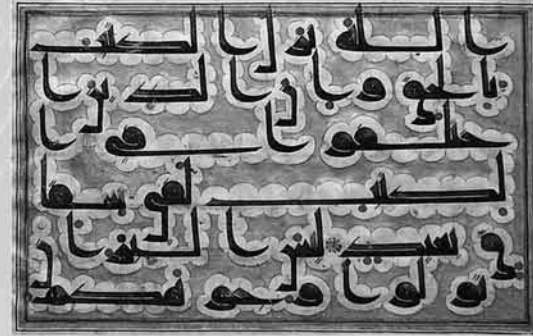 ن الله نزل الكتب
بالحق وان الذين ا
ختلفوا في ا
لكتب لفي شقا
ق بعيد ليس البر ان
تولوا وجوهكم